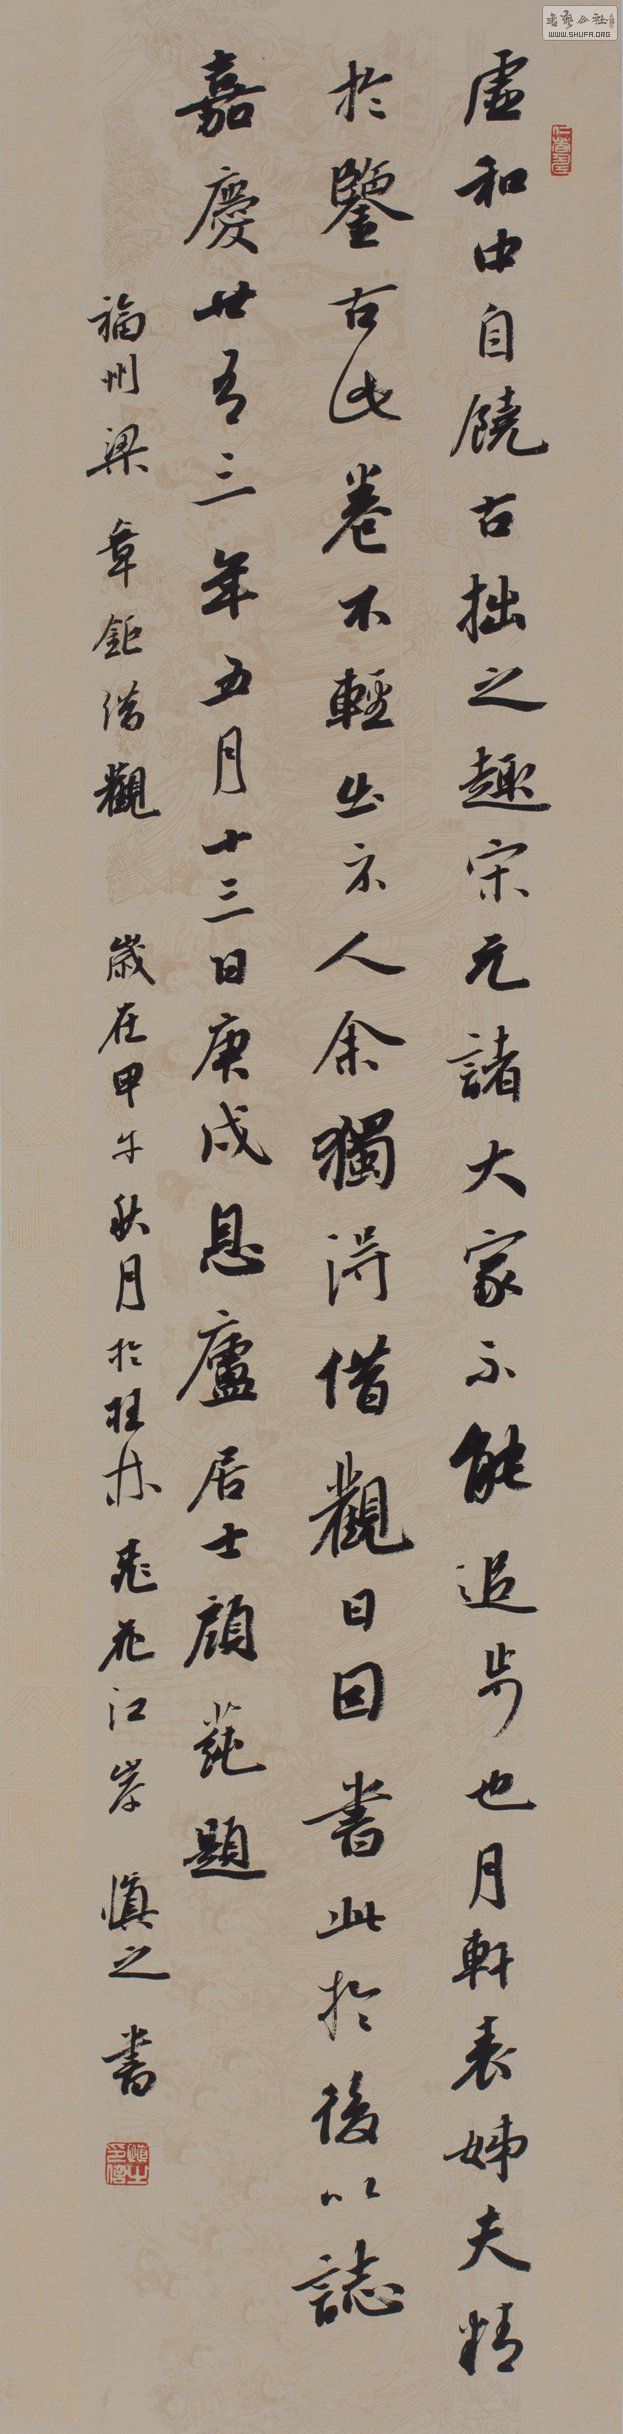 虚和中自饒古拙之趣宋元諸大家不能追步也月軒表姊夫精
於鑒古此卷不輕出示人余獨得借觀日因書此於後以誌
嘉慶廿有三年五月十三日庚戌息廬居士顔蒓題
福州梁章鉅借觀 歲在甲午秋月於桂林 花江岸 慎之書
慎之
WWW.SHUFA.ORG